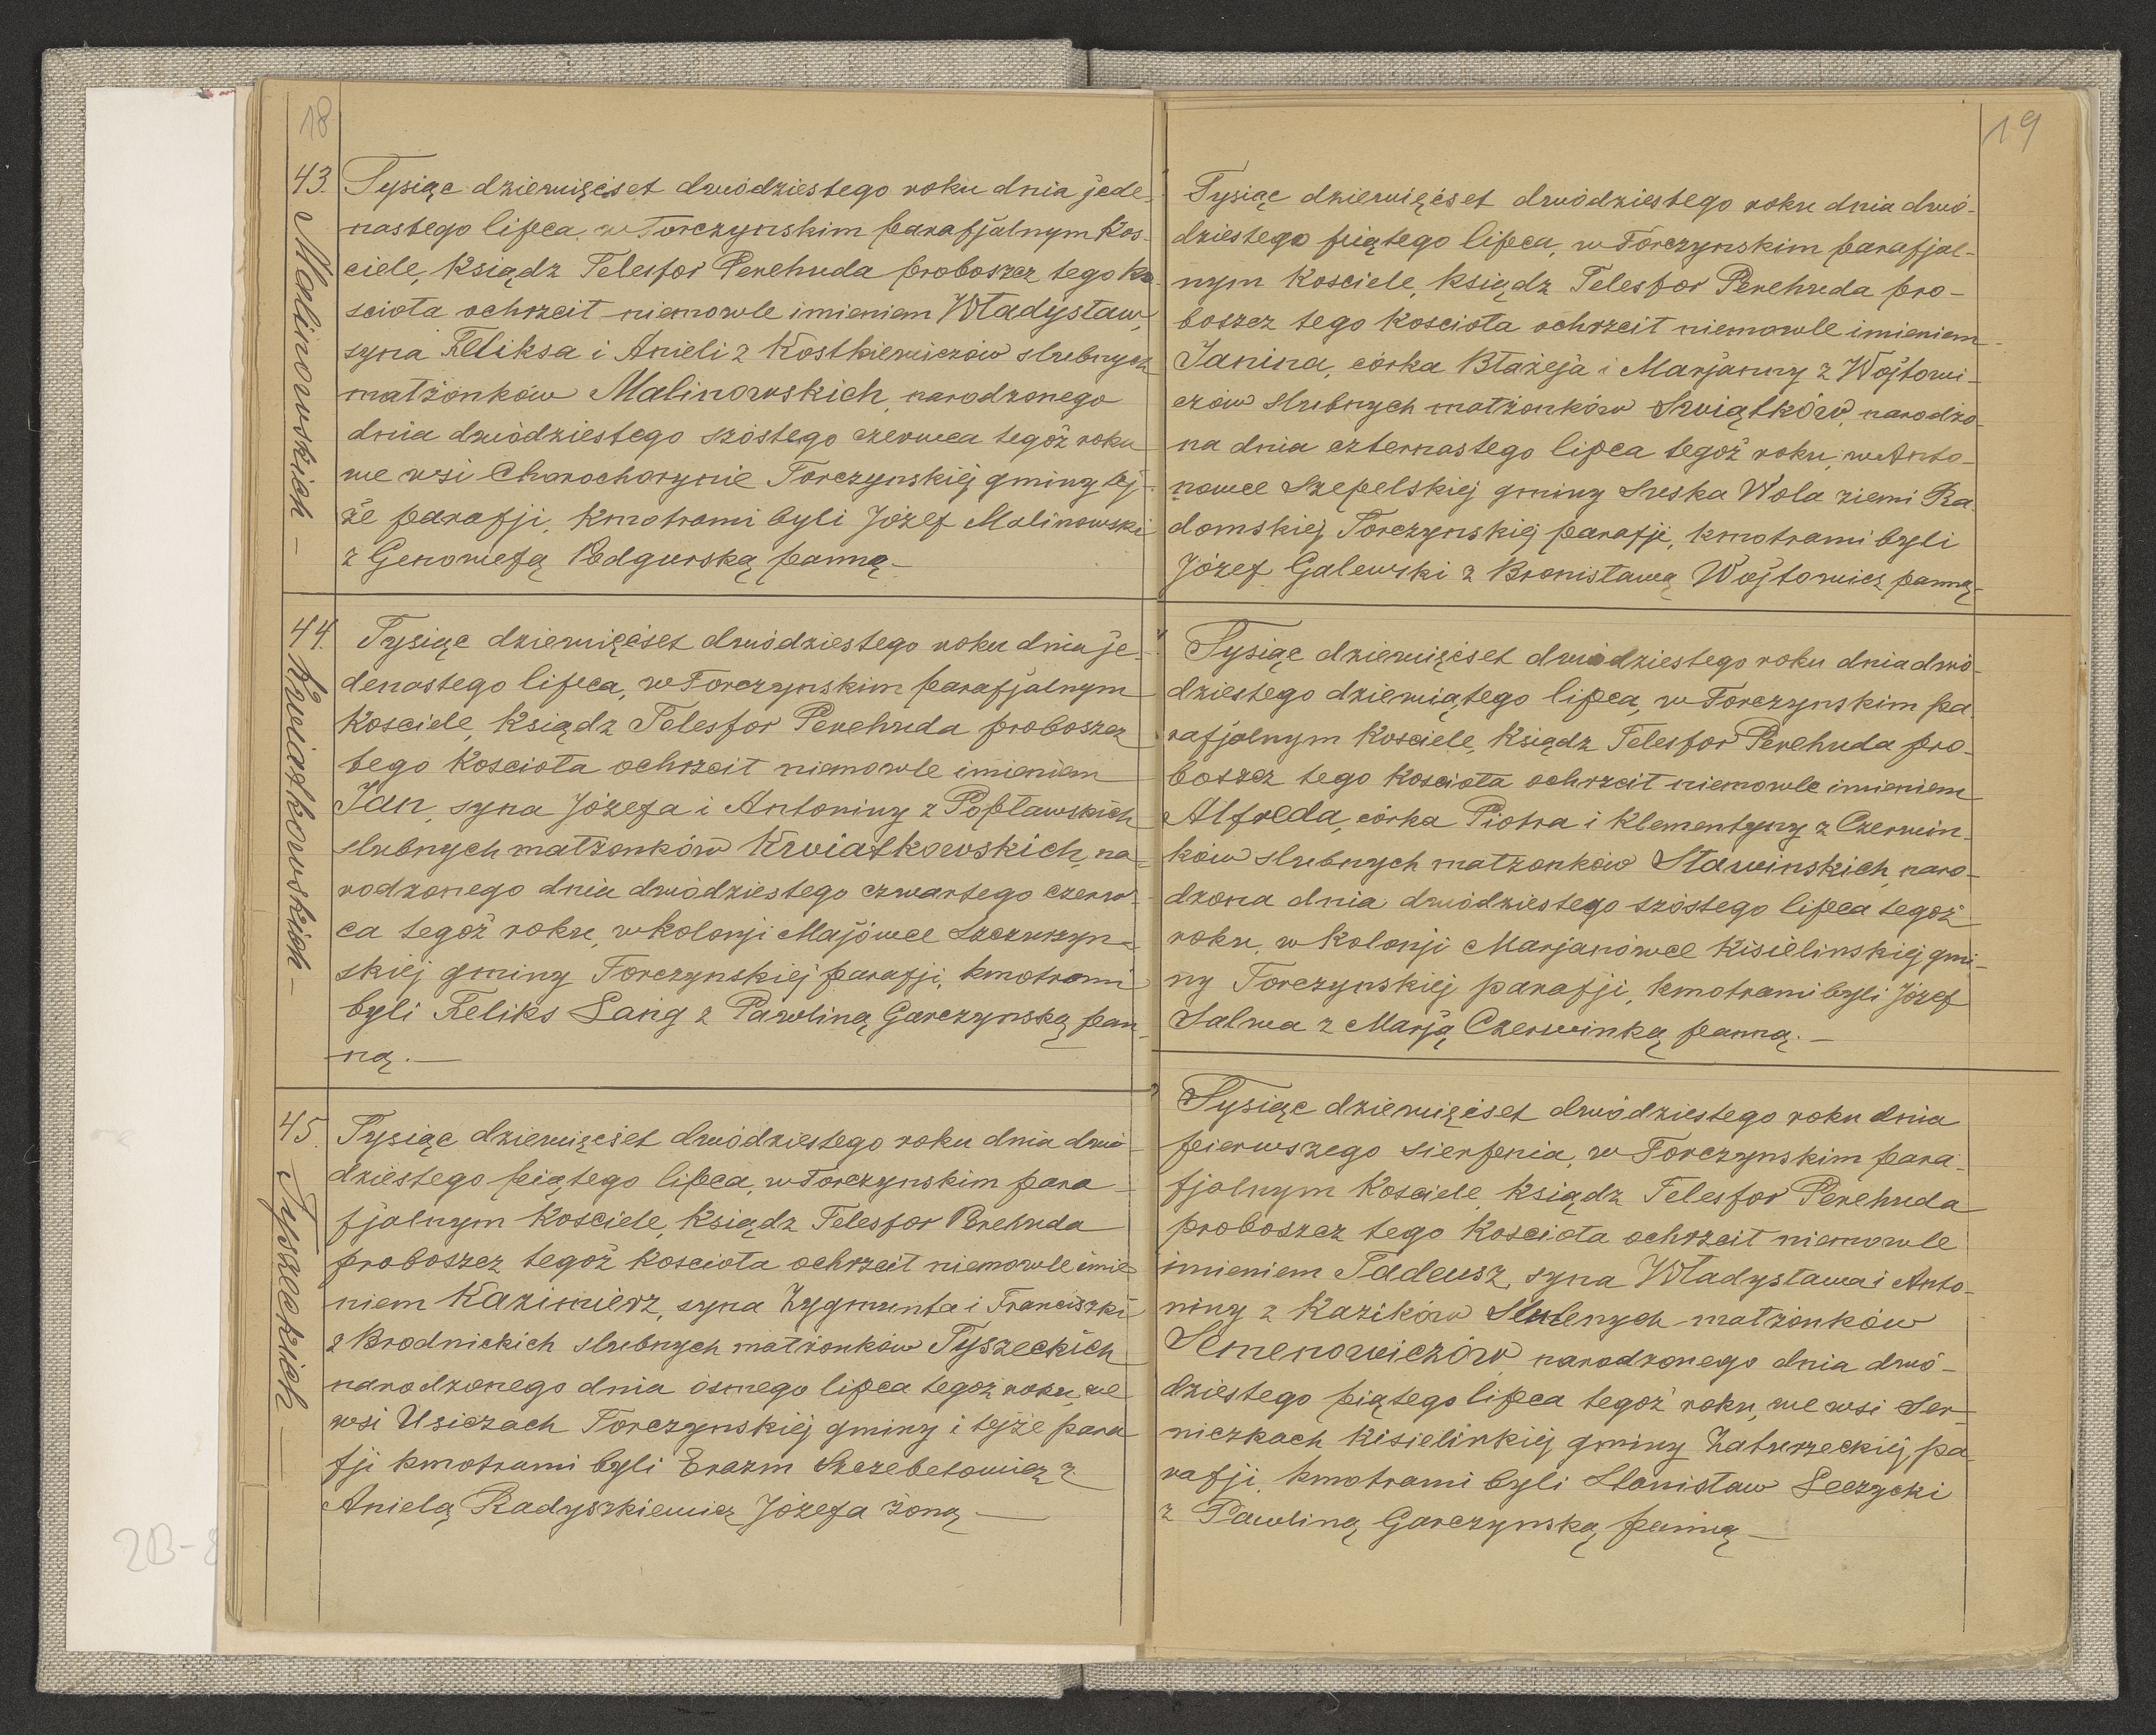 18
43.
Malinowskich –
Tysiąc dziewięćset dwódziestego roku dnia jede-
nastego lipca, w Torczynskim parafjalnym Kos-
ciele, Ksiądz Telesfor Perehuda proboszcz tego Ko-
scioła ochrzcił niemowle imieniem Władysław,
syna Feliksa i Anieli z Kostkiewiczów slubnych
małżonków Malinowskich, narodzonego
dnia dwódziestego szóstego czerwca tegóż roku
we wsi Charocharynie Torczynskiej gminy tej-
że parafji, Kmotrami byli Józef Malinowski
z Genowefą Podgurską panną –
44.
Kwiatkowskich –
Tysiąc dziewięćset dwódziestego roku dnia je-
denastego lipca, w Torczynskim parafjalnym
Kosciele, Ksiądz Telesfor Perehuda proboszcz
tego Kosciota ochrzcił niemowle imieniem
Jan, syna Józefa i Antoniny z Popławskich
slubnych małżonków Kwiatkowskich, na-
rodzonego dnia dwódziestego czwartego czerw-
ca tegóż roku, w kolonji Majówce Szczurzyn-
skiej gminy Torczynskiej parafji, kmotrami
byli Feliks Lang z Pawliną Garczynską pan-
ną. —
45.
Tyszeckich —
Tysiąc dziewięćset dwódziestego roku dnia dwó-
dziestego piątego lipca, w Torczynskim para-
fjalnym Kosciele, Ksiądz Telesfor Perehuda
proboszcz tegóż Kosciota ochrzcił niemowle imie-
niem Kazimierz, syna Zygmunta i Franciszki
z Brodnickich slubnych małżonków Tyszeckich
narodzonego dnia ósmego lipca tegoż roku, we
wsi Usiczach Torczynskiej gminy i tejże para-
fji kmotrami byli Erazm Szczebetowicz z
Anielą Radyszkiewicz Józefa żoną —
19
Tysiąc dziewięćset dwódziestego roku dnia dwó-
dziestego piątego lipca, w Torczynskim parafjal-
nym Kosciele, Ksiądz Telesfor Perehuda pro-
boszcz tego Kosciota ochrzcił niemowle imieniem
Janina, córka Błażeja i Marjanny z Wójtowi-
czów slubnych małżonków Swiątków, narodzo-
na dnia czternastego lipca tegóż roku, w Anto-
nowce Szepelskiej gminy Suska Wola ziemi Ra-
domskiej Torczynskiej parafji, kmotrami byli
Józef Galewski z Bronisławą Wójtowicz panną –
Tysiąc dziewięćset dwódziestego roku dnia dwó-
dziestego dziewiątego lipca, w Torczynskim pa-
rafjalnym Kosciele, Ksiądz Telesfor Perehuda pro-
boszcz tego Kosciota ochrzcił niemowle imieniem
Alfreda, córka Piotra i Klementyny z Czerwin-
ków slubnych małżonków Sławinskich, naro-
dzona dnia dwódziestego szóstego lipca tegóż
roku, w Kolonji Marjanówce Kisielinskiej gmi-
ny Torczynskiej parafji, kmotrami byli Józef
Salwa z Marją Czerwinką panną. —
Tysiąc dziewięćset dwódziestego roku dnia
pierwszego sierpnia, w Torczynskim para-
fjalnym Kosciele, Ksiądz Telesfor Perehuda
proboszcz tego Kosciota ochrzcił niemowle
imieniem Tadeusz, syna Władysława i Anto-
niny z Kazików slubnych małżonków
Semenowiczów narodzonego dnia dwó-
dziestego piątego lipca tegóż roku, we wsi Ser-
niczkach Kisielinkiej gminy Zaturzeckiej pa-
rafji, kmotrami byli Stanisław Leczycki
z Pawliną Garczynską panną —